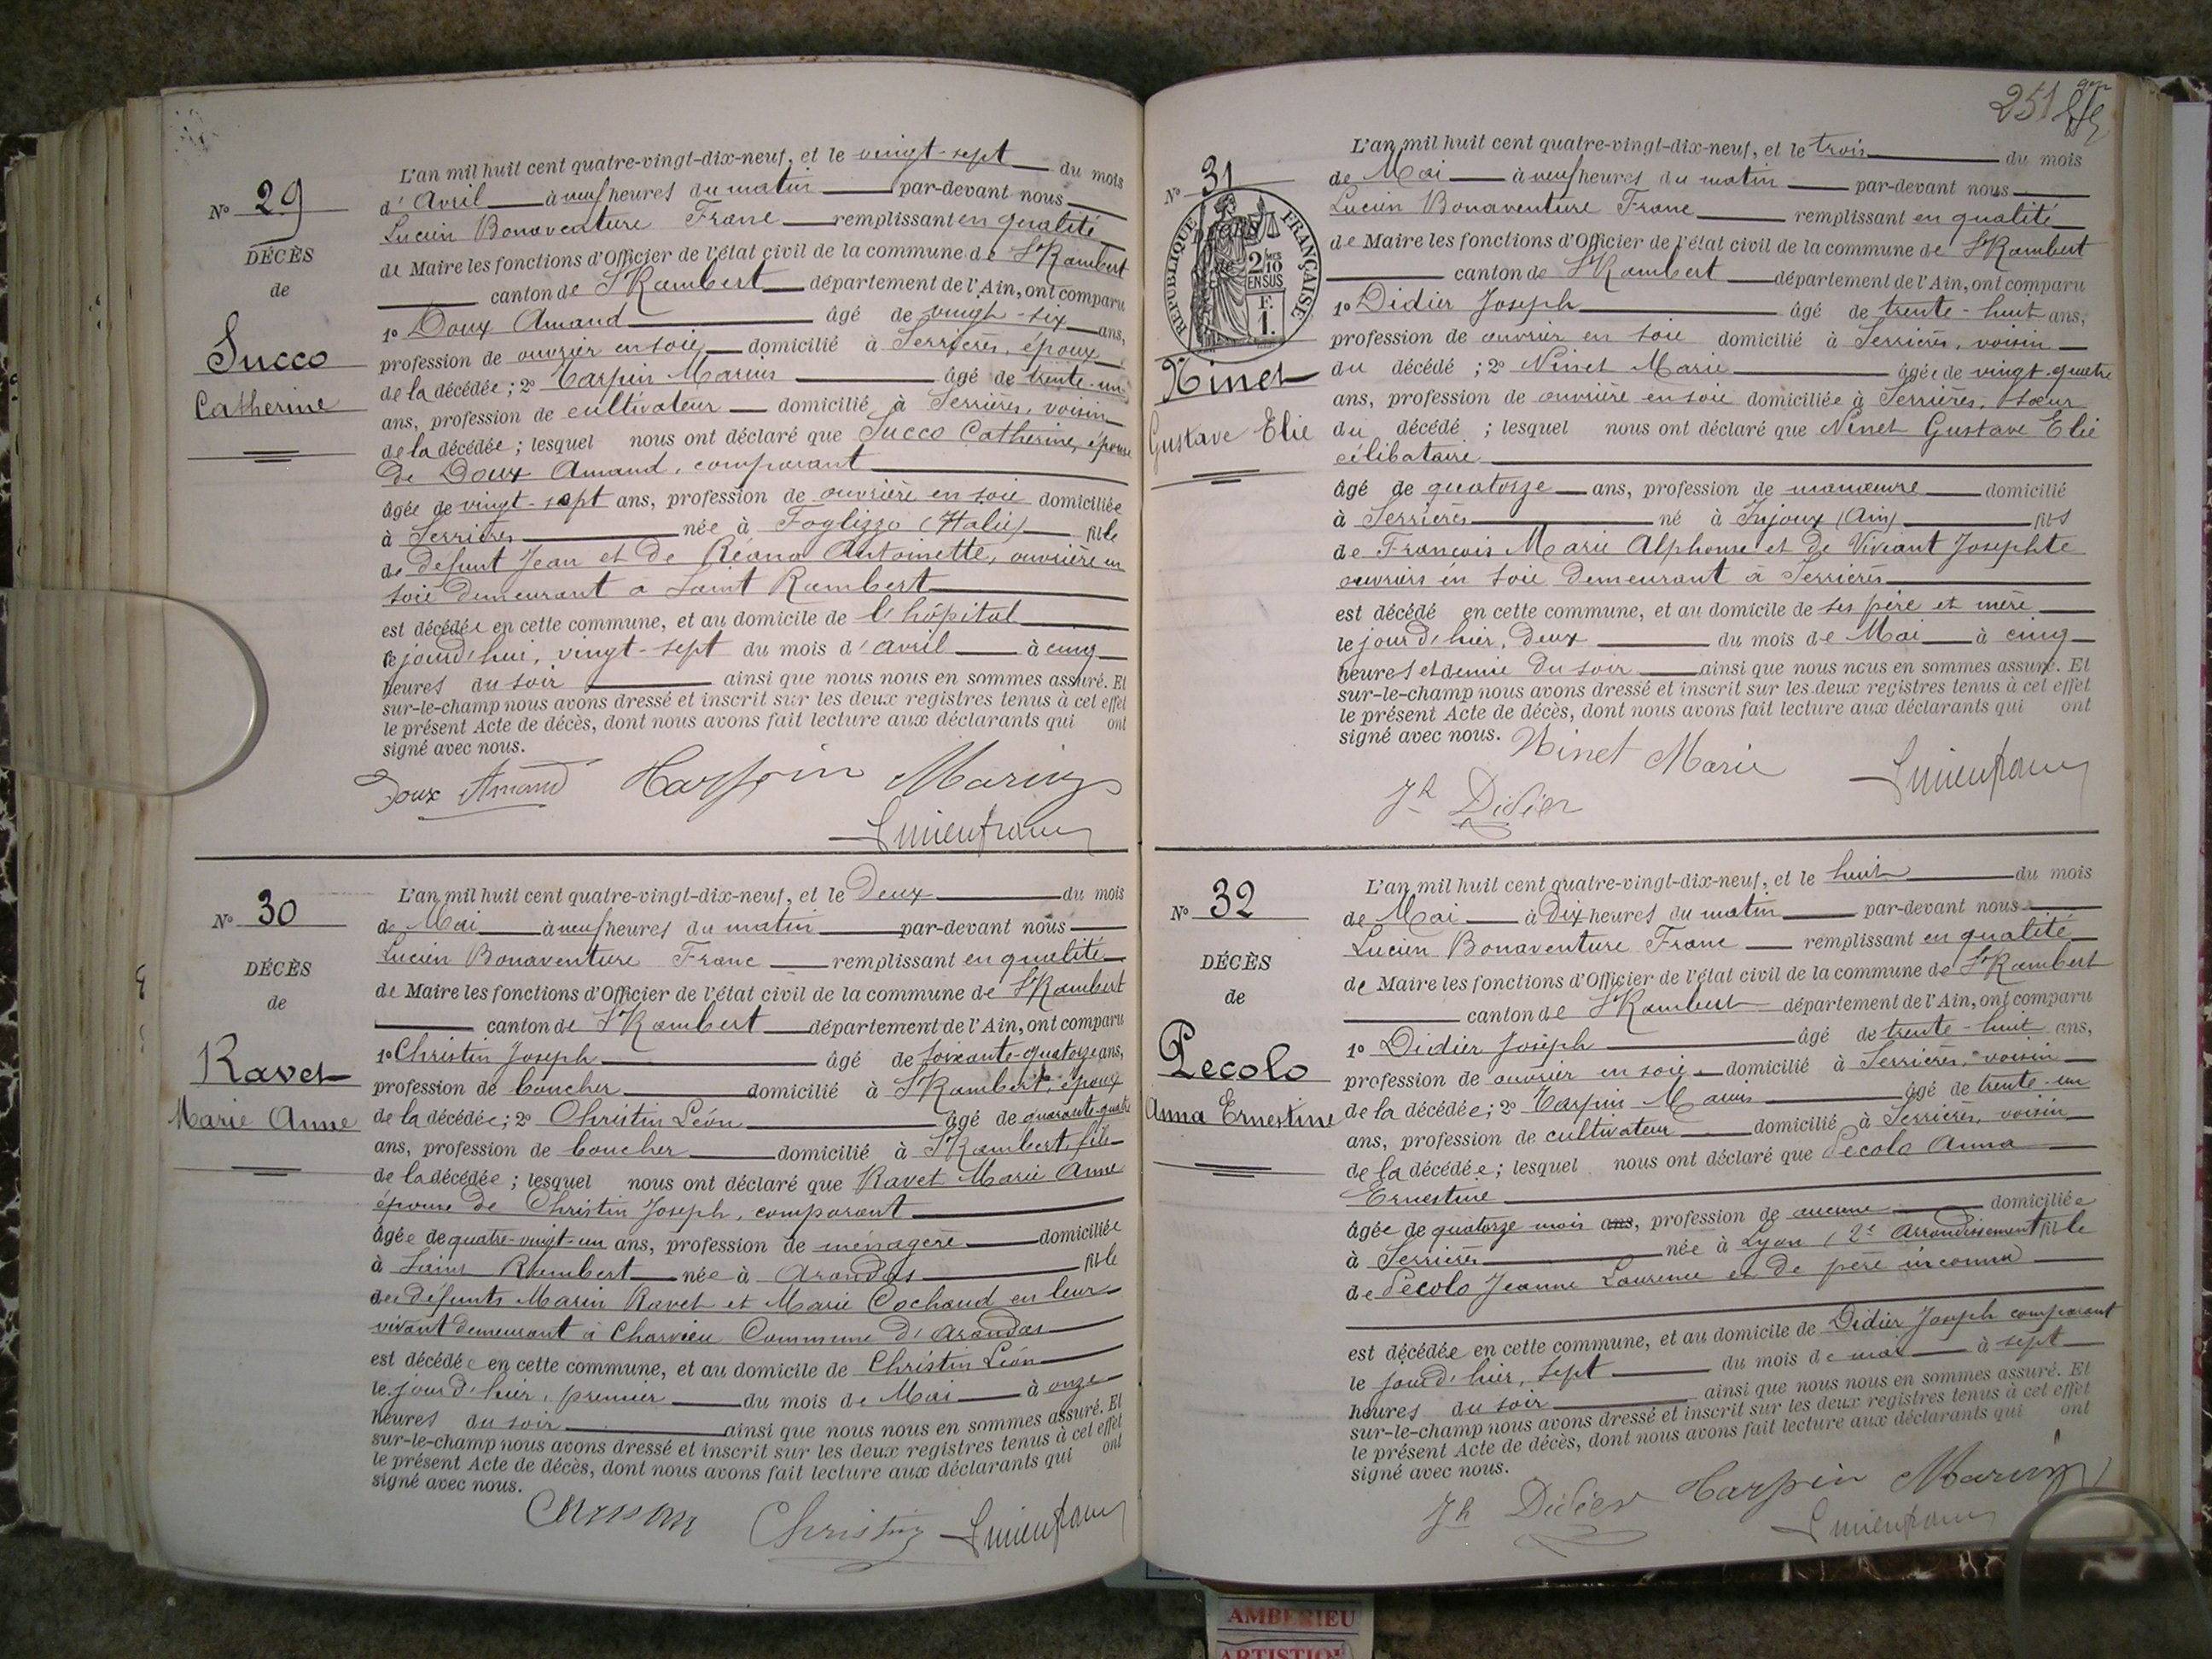 N° 29
DÉCÈS
de
Succo
Catherine
L'an mil huit cent quatre-vingt-dix-neuf, et le vingt-sept du mois
d'Avril à neuf heures du matin par-devant nous
Lucien Bonaventure Franc remplissant en qualité
de Maire les fonctions d'Officier de l'état civil de la commune de St Rambert
canton de St Rambert département de l'Ain, ont comparu
1° Doux Amand âgé de vingt-six ans,
profession de ouvrier en soie domicilié à Serrières, époux
de la décédée; 2° Carpin Marius âgé de trente-un
ans, profession de cultivateur domicilié à Serrières, voisin
de la décédée; lesquel nous ont déclaré que Succo Catherine, épouse
de Doux Amand, comparant
âgée de vingt-sept ans, profession de ouvrière en soie domiciliée
à Serrières née à Foglizzo (Italie) fille
de défunt Jean et de Réano Antoinette, ouvrière en
soie demeurant à Saint Rambert
est décédée en cette commune, et au domicile de l'hôpital
ce jourd'hui, vingt-sept du mois d'avril à cinq
heures du soir ainsi que nous nous en sommes assuré. Et
sur-le-champ nous avons dressé et inscrit sur les deux registres tenus à cet effet
le présent Acte de décès, dont nous avons fait lecture aux déclarants qui ont
signé avec nous.
Doux Amand Carpin Marius
Lucien Franc
N° 30
DÉCÈS
de
Ravet
Marie Anne
L'an mil huit cent quatre-vingt-dix-neuf, et le deux du mois
de Mai à neuf heures du matin par-devant nous
Lucien Bonaventure Franc remplissant en qualité
de Maire les fonctions d'Officier de l'état civil de la commune de St Rambert
canton de St Rambert département de l'Ain, ont comparu
1° Christin Joseph âgé de soixante-quatorze ans,
profession de boucher domicilié à St Rambert, époux
de la décédée; 2° Christin Léon âgé de quarante-quatre
ans, profession de boucher domicilié à St Rambert, fils
de la décédée; lesquel nous ont déclaré que Ravet Marie Anne
épouse de Christin Joseph, comparant
âgée de quatre-vingt-un ans, profession de ménagère domiciliée
à Saint Rambert née à Arandas fille
des défunts Marin Ravet et Marie Cochaud en leur
vivant demeurant à Charvieu Commune d'Arandas
est décédée en cette commune, et au domicile de Christin Léon
le jour d'hier, premier du mois de Mai à onze
heures du soir ainsi que nous nous en sommes assuré. Et
sur-le-champ nous avons dressé et inscrit sur les deux registres tenus à cet effet
le présent Acte de décès, dont nous avons fait lecture aux déclarants qui ont
signé avec nous.
Christin Lucien Franc
251
N° 31
RÉPUBLIQUE FRANÇAISE
2/10
EN SUS
F.
1.
Ninet
Gustave Elie
L'an mil huit cent quatre-vingt-dix-neuf, et le trois du mois
de Mai à neuf heures du matin par-devant nous
Lucien Bonaventure Franc remplissant en qualité
de Maire les fonctions d'Officier de l'état civil de la commune de St Rambert
canton de St Rambert département de l'Ain, ont comparu
1° Didier Joseph âgé de trente-huit ans,
profession de ouvrier en soie domicilié à Serrières, voisin
du décédé; 2° Ninet Marie âgée de vingt-quatre
ans, profession de ouvrière en soie domiciliée à Serrières, sœur
du décédé; lesquel nous ont déclaré que Ninet Gustave Elie
célibataire
âgé de quatorze ans, profession de manœuvre domicilié
à Serrières né à Injoux (Ain) fils
de François Marie Alphonse et de Viviant Josephte
ouvriers en soie demeurant à Serrières
est décédé en cette commune, et au domicile de ses père et mère
le jour d'hier, deux du mois de Mai à cinq
heures et demie du soir ainsi que nous nous en sommes assuré. Et
sur-le-champ nous avons dressé et inscrit sur les deux registres tenus à cet effet
le présent Acte de décès, dont nous avons fait lecture aux déclarants qui ont
signé avec nous.
Ninet Marie
Jh Didier Lucien Franc
N° 32
DÉCÈS
de
Pecolo
Anna Ernestine
L'an mil huit cent quatre-vingt-dix-neuf, et le huit du mois
de Mai à dix heures du matin par-devant nous
Lucien Bonaventure Franc remplissant en qualité
de Maire les fonctions d'Officier de l'état civil de la commune de St Rambert
canton de St Rambert département de l'Ain, ont comparu
1° Didier Joseph âgé de trente-huit ans,
profession de ouvrier en soie domicilié à Serrières, voisin
de la décédée; 2° Carpin Marius âgé de trente-un
ans, profession de cultivateur domicilié à Serrières, voisin
de la décédée; lesquel nous ont déclaré que Pecolo Anna
Ernestine
âgée de quatorze mois ans, profession de aucune domiciliée
à Serrières née à Lyon, 2e arrondissement fille
de Pecolo Jeanne Laurence et de père inconnu
est décédée en cette commune, et au domicile de Didier Joseph comparant
le jour d'hier, sept du mois de mai à sept
heures du soir ainsi que nous nous en sommes assuré. Et
sur-le-champ nous avons dressé et inscrit sur les deux registres tenus à cet effet
le présent Acte de décès, dont nous avons fait lecture aux déclarants qui ont
signé avec nous.
Jh Didier Carpin Marius
Lucien Franc
AMBERIEU
ARTISTIQUE